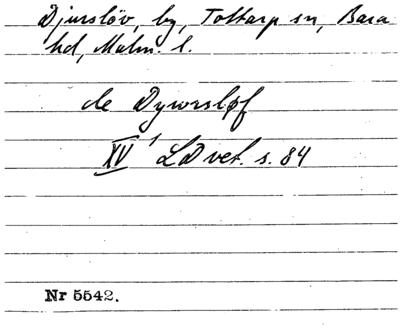 Djurslöv, by, Tottarp sn, Bara
hd, Malm. l.
de Dywrsløf
XV¹ LD vet. s. 84
Nr 5542.